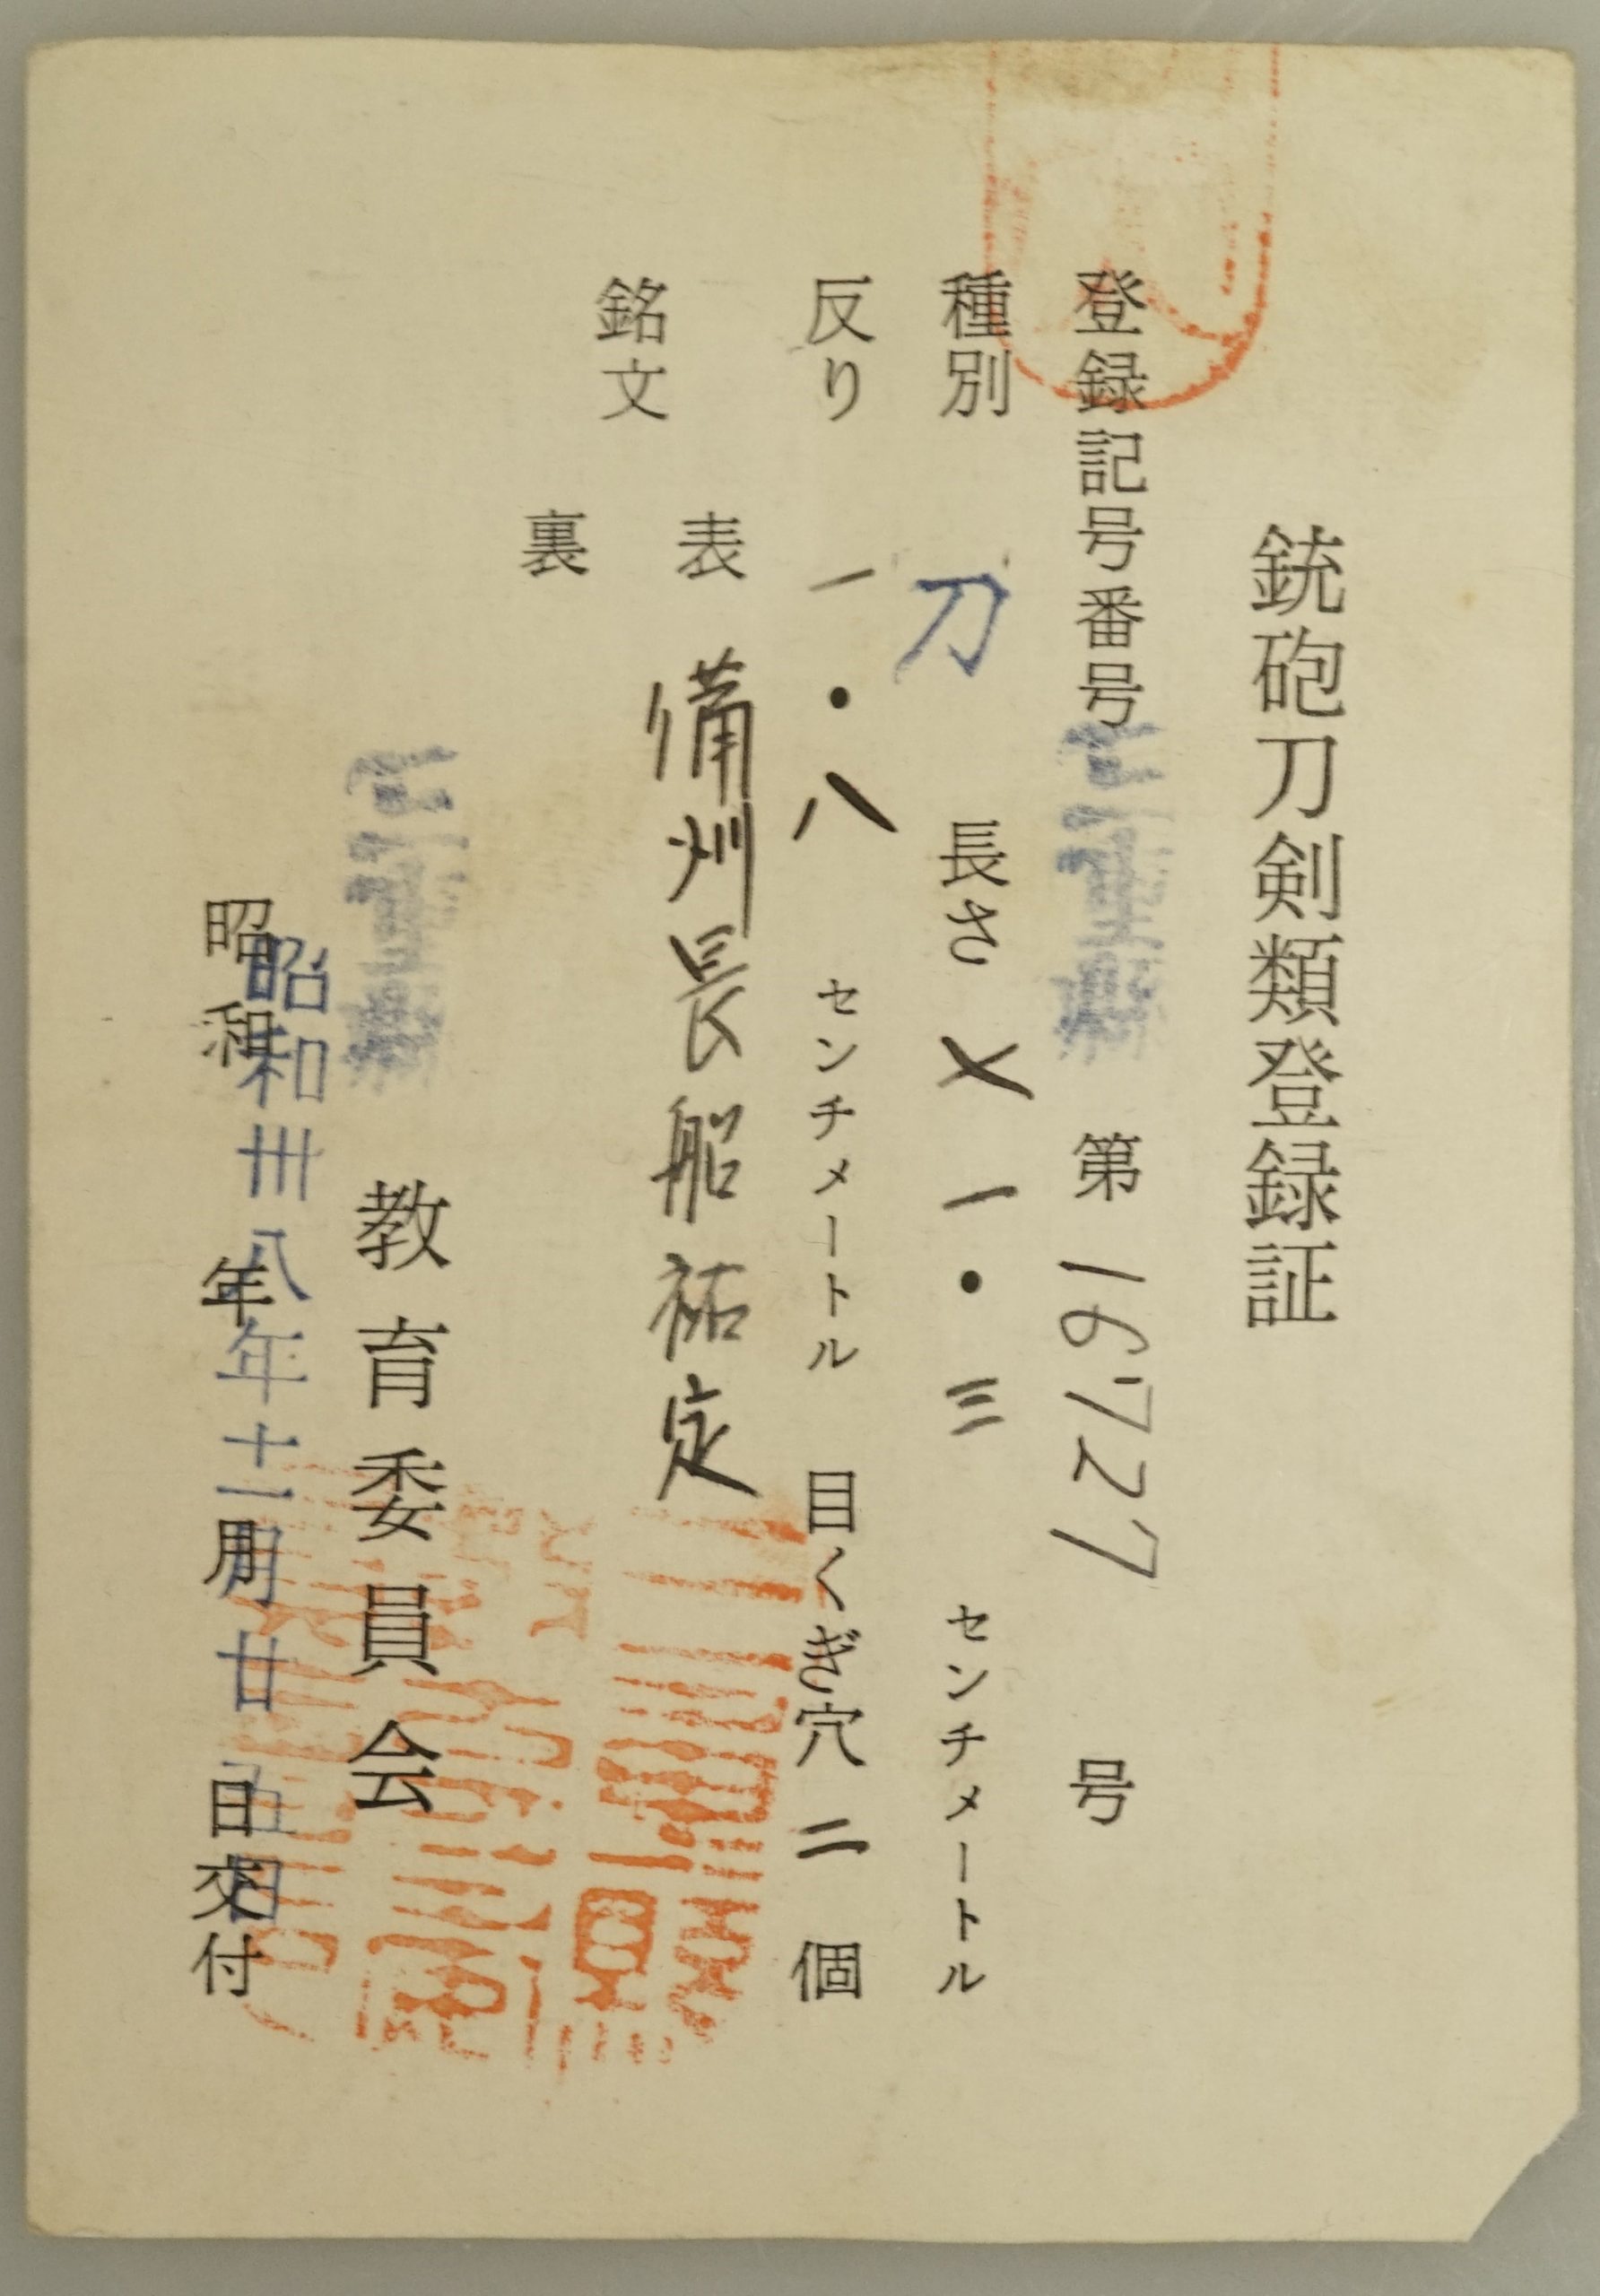 銃砲刀剣類登録証
登録記号番号 三重県 第 16727 号
種別 刀 長さ 七一・三 センチメートル
反り 一・八 センチメートル 目くぎ穴 二 個
銘文
表 備州長船祐定
裏
三重県 教育委員会
昭和卅八年十一月廿五日
昭和 年 月 日交付